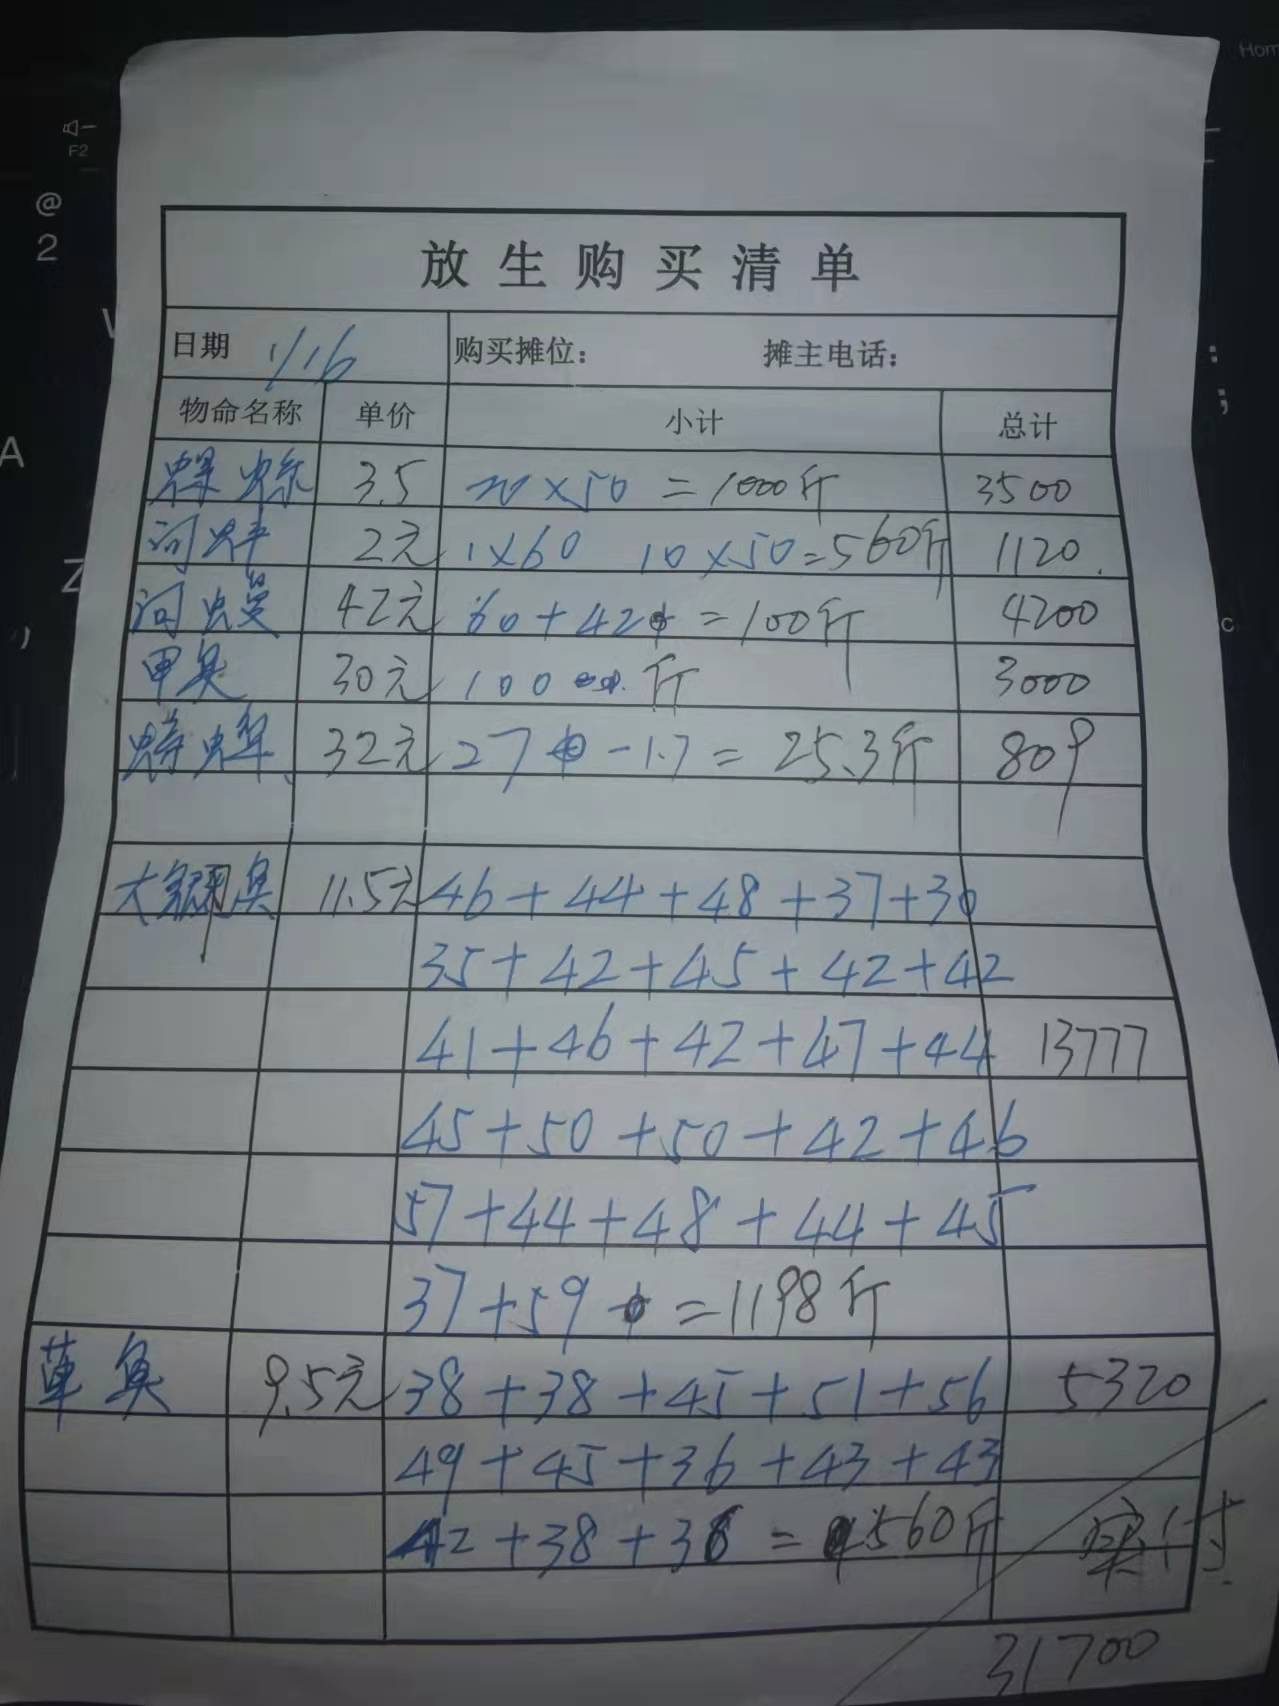 放生购买清单
日期 1/16 购买摊位: 摊主电话:
物命名称 单价 小计 总计
螺蛳 3.5 20×50=1000斤 3500
河蚌 2元 1×60 10×50=560斤 1120.
河鳗 42元 60+42 =100斤 4200
甲鱼 30元 100 斤 3000
32元 27 -1.7=25.3斤 809
大 鱼 11.5元 46+44+48+37+30
35+42+45+42+42
41+46+42+47+44 13777
45+50+50+42+46
57+44+48+44+45
37+59 =1198斤
草鱼 9.5元 38+38+45+51+56 5320
49+45+36+43+43
42+38+36 = 560斤 实付
31700
@
2
F2
A
Z
Hom